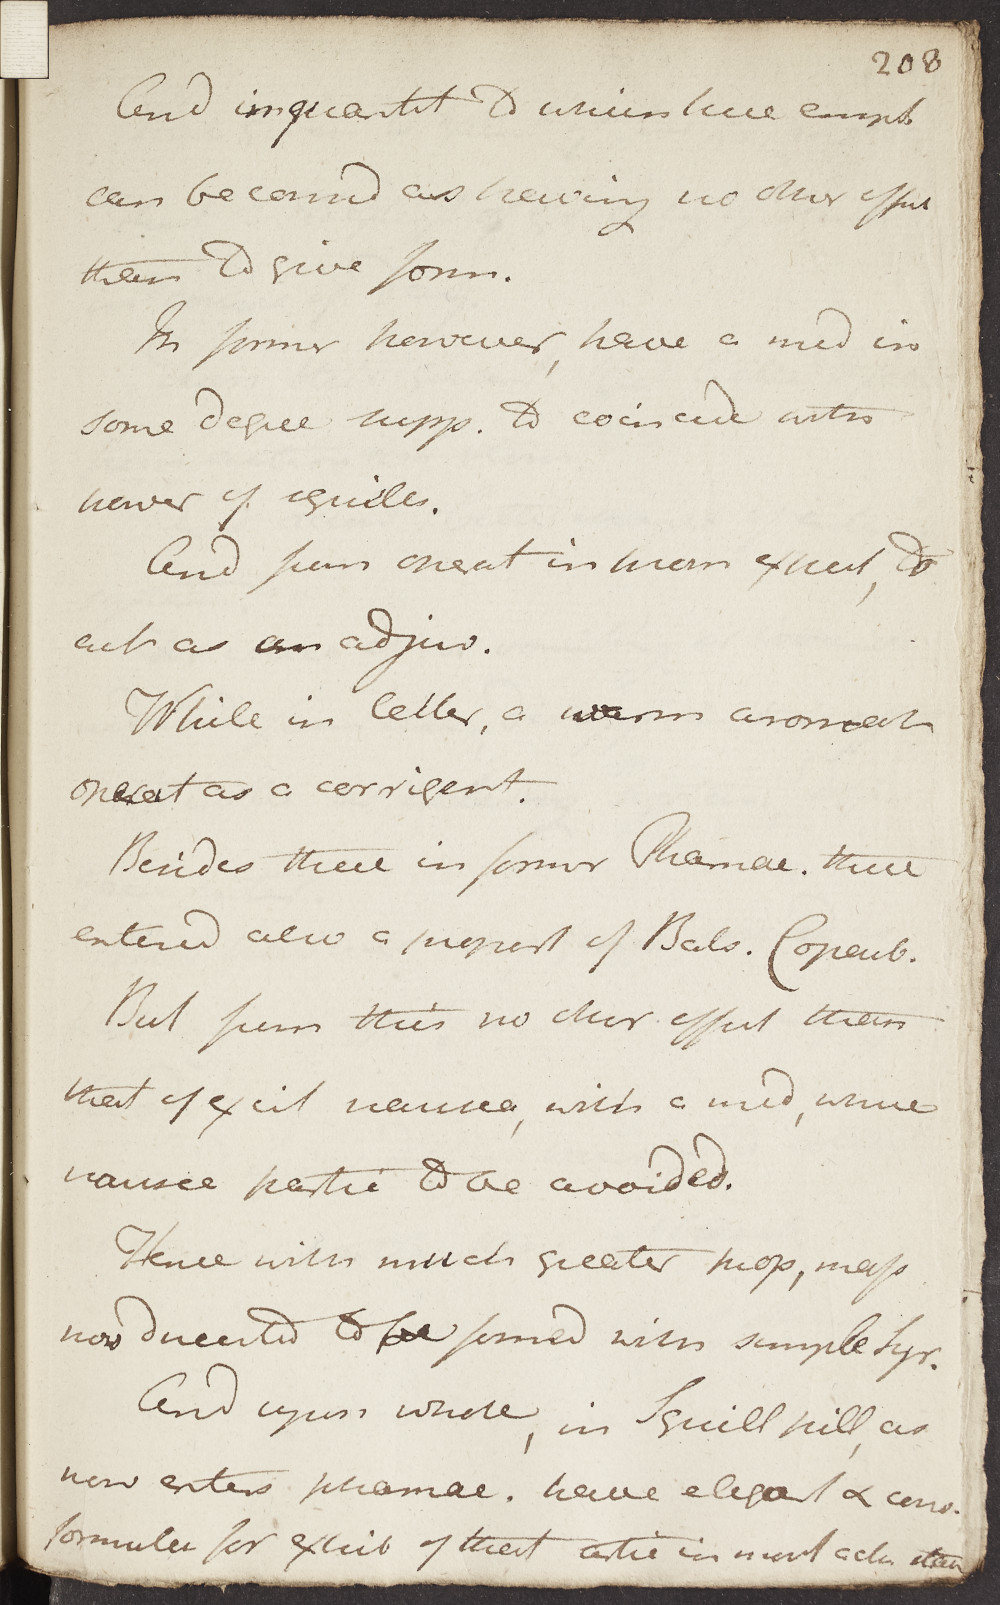 208
And in quantit to which here empl
can be consid as having no other effect
than to give form.
In former however, have a med in
some degree supp. to coincide with
power of squills.
And from operat in prom expect, to
act as an adjuv.
While in latter, a warm aromat
operat as a corrigent.
Besides these in former Pharmac. there
entered also a proport of Bals. Copaib.
But from this no other effect than
that of excit nausea, with a med, where
nausea partic to be avoided.
Hence with much greater prop, mass
now directed to be formed with simple Syr.
And upon whole, in Squill pill, as
now enters pharmac. have elegant & conv.
formula for exhib of that artic in most activ state